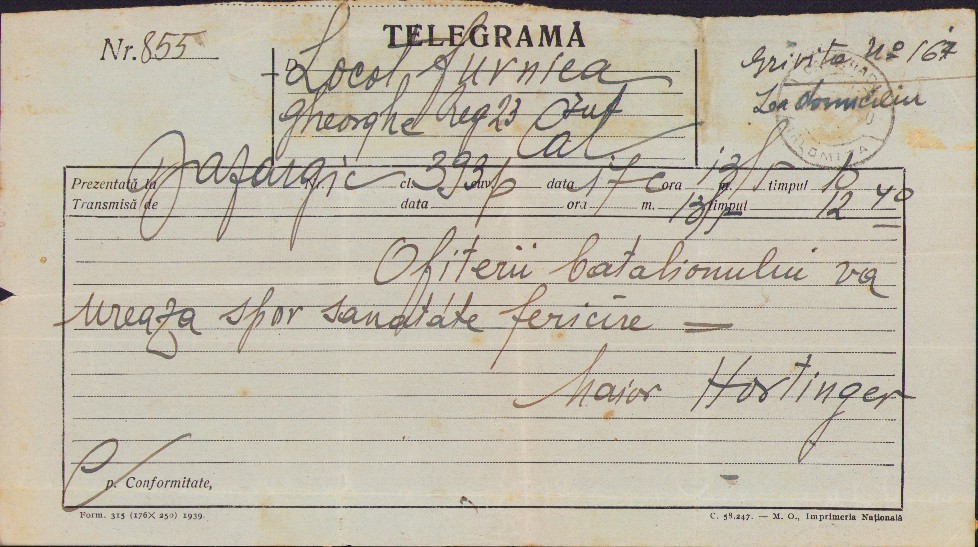 TELEGRAMĂ
Nr. 855
Locot Jurnica
Gheorghe Reg 23 Inf
Cal
Grivita No 167
La domiciliu
IALOMIȚA
Prezentată la Bazargic Nr. 393 cl. cuv. data 17 ora 13 m. timpul 16
Transmisă de data ora m. timpul 12 40
Ofiterii batalionului va
ureaza spor sanatate fericire =
Maior Hortinger
p. Conformitate,
Form. 315 (176×250) 1939.
C. 58.247. — M. O., Imprimeria Națională